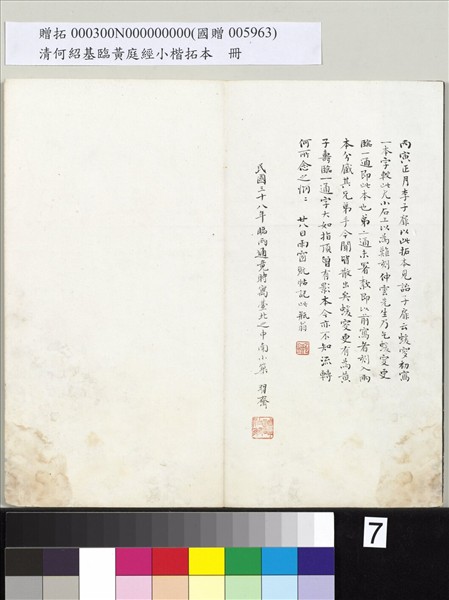 贈拓 000300N000000000(國贈 005963)
清何紹基臨黃庭經小楷拓本 冊
丙寅正月李子扉以此拓本見詒子扉云蝯叟初寫
一本字較此尤小石工以為難刻仲雲先生乃乞蝯叟更
臨一通即此本也弟二通未署款即以前寫者刻入兩
本分藏其兄弟手今聞皆散出矣蝯叟更有為黃
子壽臨一通字大如指頂曾有影本今亦不知流轉
何所念之惘惘 廿八日雨窗觀帖記此 瓶翁
民國三十八年臨兩通竟時寓臺北之中南小築
7